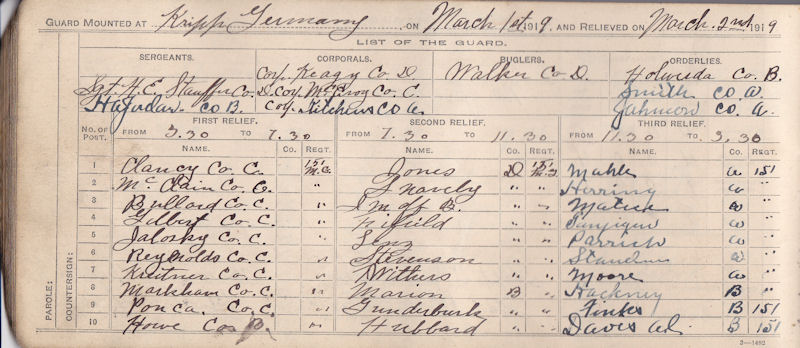 GUARD MOUNTED AT Kripp Germany ON March 1st 1919, AND RELIEVED ON March 2nd 1919
LIST OF THE GUARD.
SERGEANTS. CORPORALS. BUGLERS. ORDERLIES.
Corp. Keagy Co. D. Walker Co. D. Holweda Co. B.
Sgt. H.C. Stauffer Co. D. Corp. McElroy Co. C. Smith Co. A.
Co B. Corp. Kitchens Co A. Johnson Co. A.
FIRST RELIEF. SECOND RELIEF. THIRD RELIEF.
No. of Post. FROM 3.30 TO 7.30 FROM 7.30 TO 11.30 FROM 11.30 TO 3.30
NAME. Co. REGT. NAME. Co. REGT. NAME. Co. REGT.
1 Clancy Co. C. 151 M.G. Jones D 151 M.G. Mahle A 151
2 McClain Co. C. " Snavely " " Herring A "
3 Bullard Co. C. " " " A "
4 Gilbert Co. C. " Fifield " " A "
5 Jalosky Co. C. " Lenz " " Parrish A "
6 Reynolds Co. C. " Stevenson " " A "
7 Kreitner Co. C. " Withers " " Moore A "
8 Markham Co. C. " Marion B " Hackney B "
9 Ponca. Co. C. " Funderburk " " Finks B 151
10 Howe Co. B. " Hubbard " " Davis B 151
PAROLE:
COUNTERSIGN:
3—1492